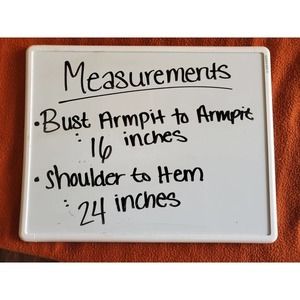 Measurements
• Bust Armpit to Armpit
: 16 inches
• Shoulder to Hem
: 24 inches